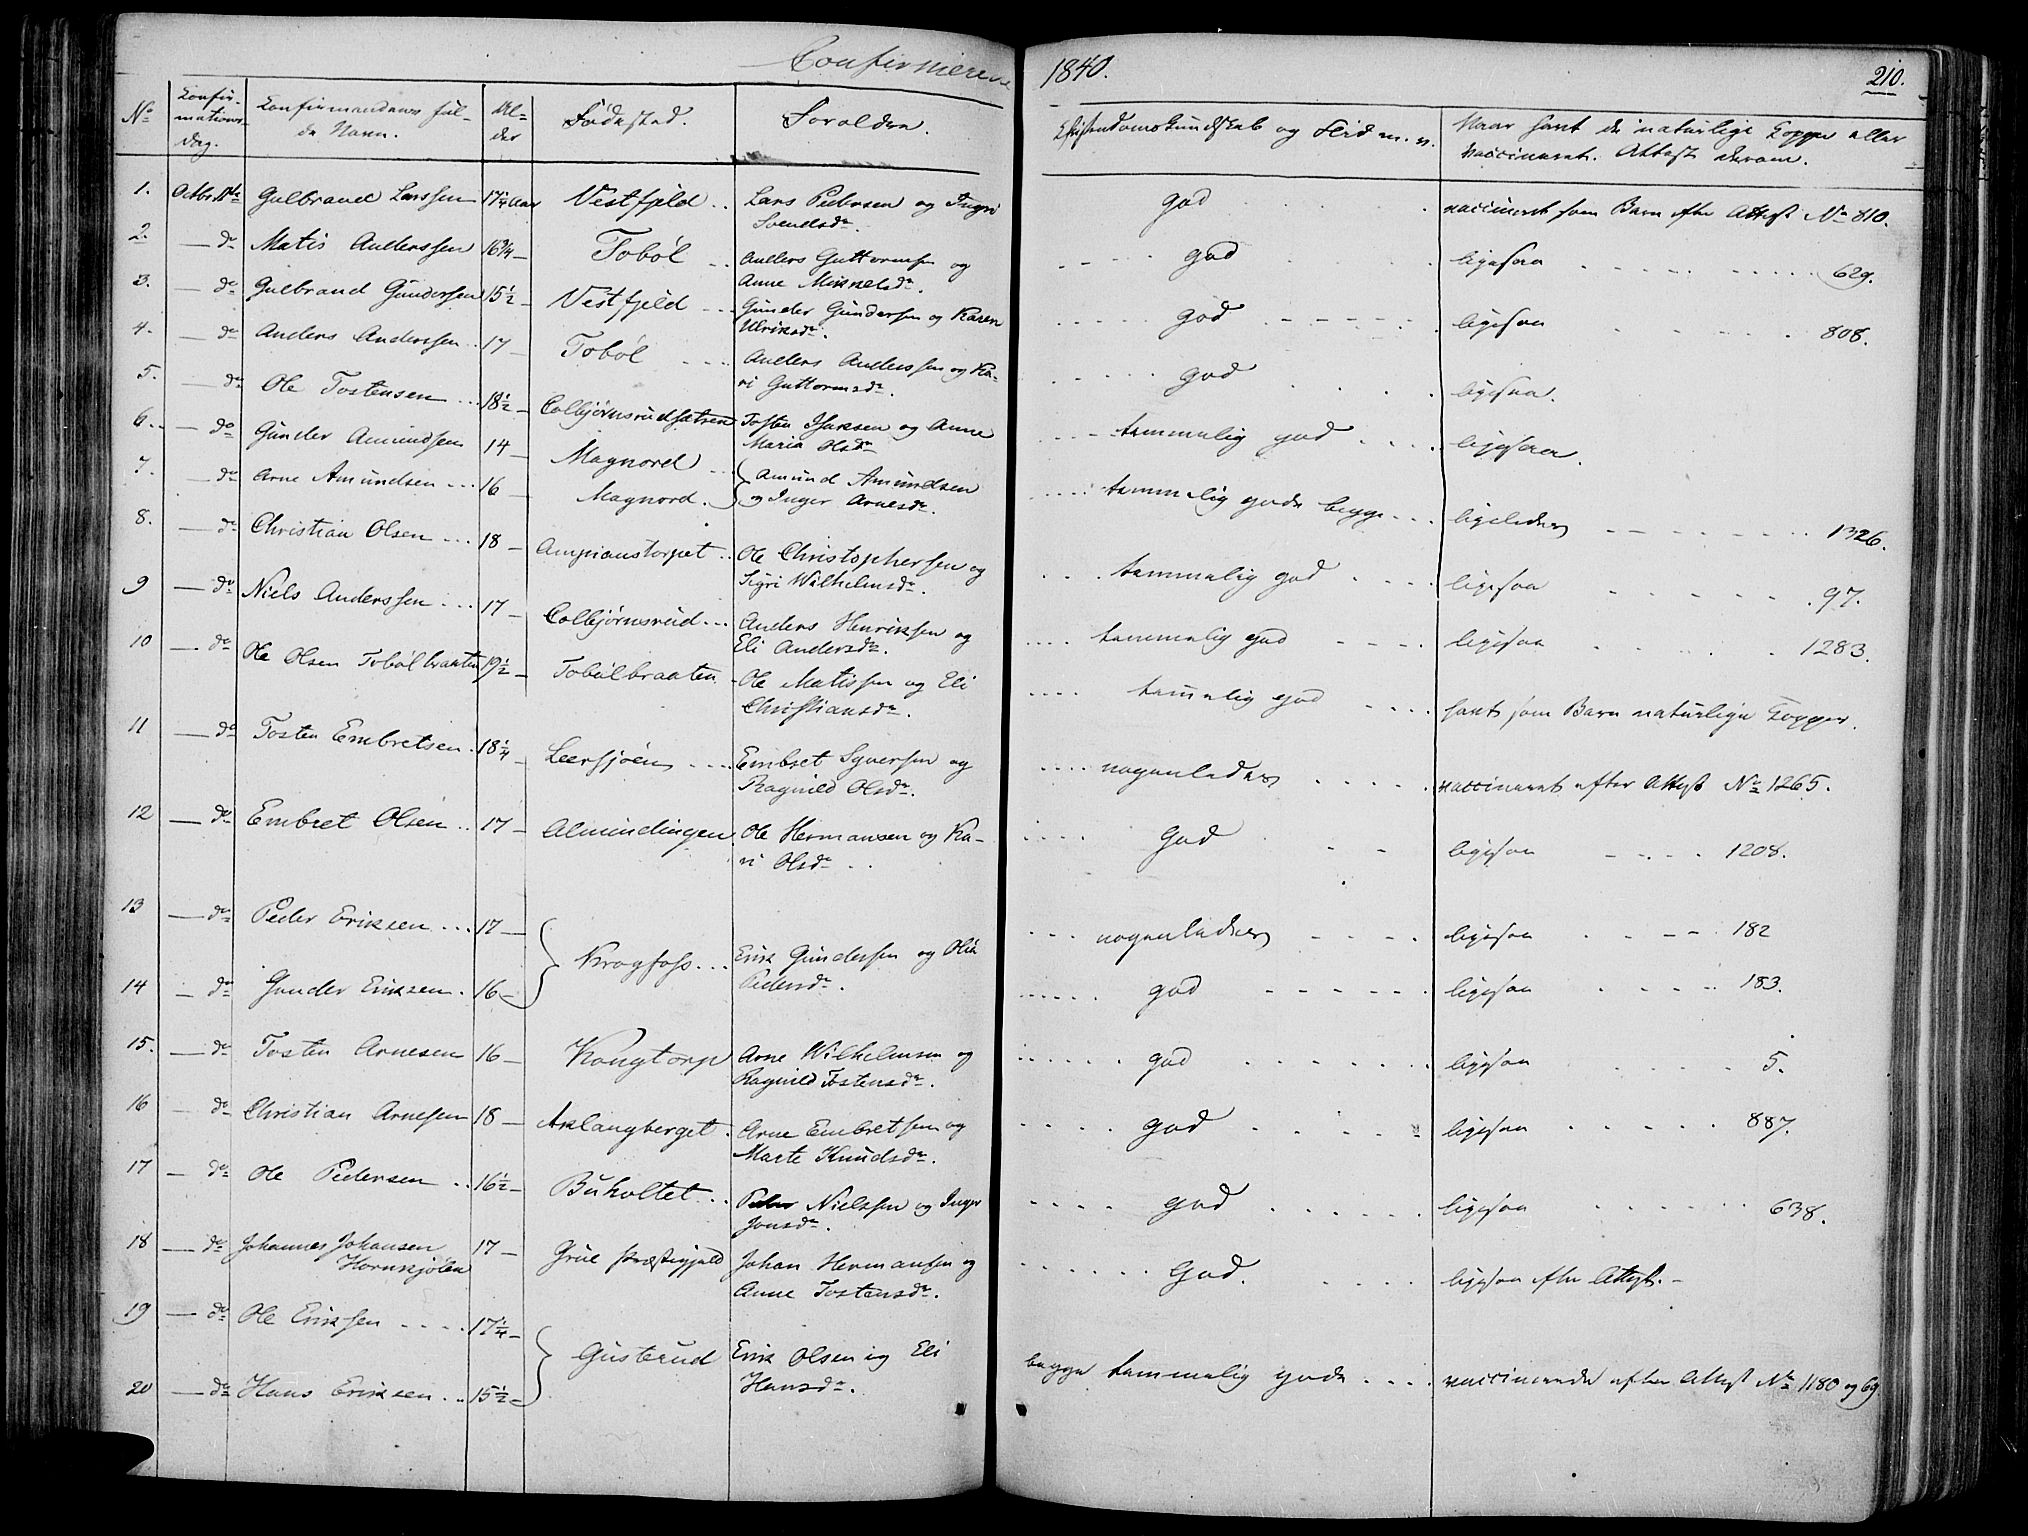 Confirmerede 1840. 210.
No Confirmationsdag. Confirmandens fulde Navn. Alder Födested. Forældre. Christendomskundskab og Flid m. v. Naar havt de naturlige Kopper eller vaccineret. Attest derom.
1. Octbr Gulbrand Larssen 17 1/4 Aar Vestfjeld Lars Pedersen og Ingri Svendsdr. god vaccineret som Barn efter Attest No 810.
2. do Matis Anderssen 16 3/4 Tobøl Anders Guttormsen og Anne Mikkelsdr. god ligesaa 629.
3. do Gulbrand Gundersen 15 1/2 Vestfjeld Gunder Gundersen og Karen Ulriksdr. god ligesaa 808.
4. do Anders Anderssen 17 Tobøl Anders Anderssen og Kari Guttormsdr. god ligesaa.
5. do Ole Tostensen 18 1/2 Colbjørnsrudsætren Tosten Isaksen og Anne Maria Olsdr temmelig god ligesaa.
6. do Gunder Amundsen 14 Magnord
7. do Arne Amundsen 16 Magnord. Amund Amundsen og Inger Arnesdr. temmelig gode begge ligeledes 1326.
8. do Christian Olsen 18 Ampianstorpet Ole Christophersen og Sigri Wilhelmsdr. temmelig god ligesaa 97.
9 do Niels Anderssen 17 Colbjørnsrud Anders Henriksen og Eli Andersdr. temmelig god ligesaa 1283.
10 do Ole Olsen Tobølbraaten 19 1/2 Tobølbraaten Ole Matissen og Eli Christiansdr. temelig god havt som Barn naturlige Kopper.
11 do Tosten Embretsen 18 1/4 Leersjøen Embret Syversen og Ragnild Olsdr. nogenledes vaccineret efter Attest No 1265.
12 do Embret Olsen 17 Almindingen Ole Hermansen og Kari Olsdr God ligesaa 1208.
13 do Peder Eriksen 17 Krogfoss Erik Gundersen og Olia Pedersdr. nogenledes ligesaa 182
14 do Gunder Eriksen 16 god ligesaa 183.
15. do Tosten Arnesen 16 Kongtorp Arne Wilhelmsen og Ragnild Tostensdr. god ligesaa 5.
16 do Christian Arnesen 18 Aklangberget Arne Embretsen og Marte Knudsdr. god ligesaa 887.
17 do Ole Pedersen 16 1/2 Buholtet Peder Nielssen og Inger Jonsdr. God ligesaa 638.
18 do Johannes Johansen Hornkjølen 17 Grue Præstegjeld Johan Hermansen og Anne Tostensdr. God. ligesaa efter Attest.
19 do Ole Erikssen 17 1/4 Gusterud Erik Olsen og Eli Hansdr. begge temmelig gode vaccinerede efter Attest No 1180 og 69
20 do Hans Eriksen 15 1/2